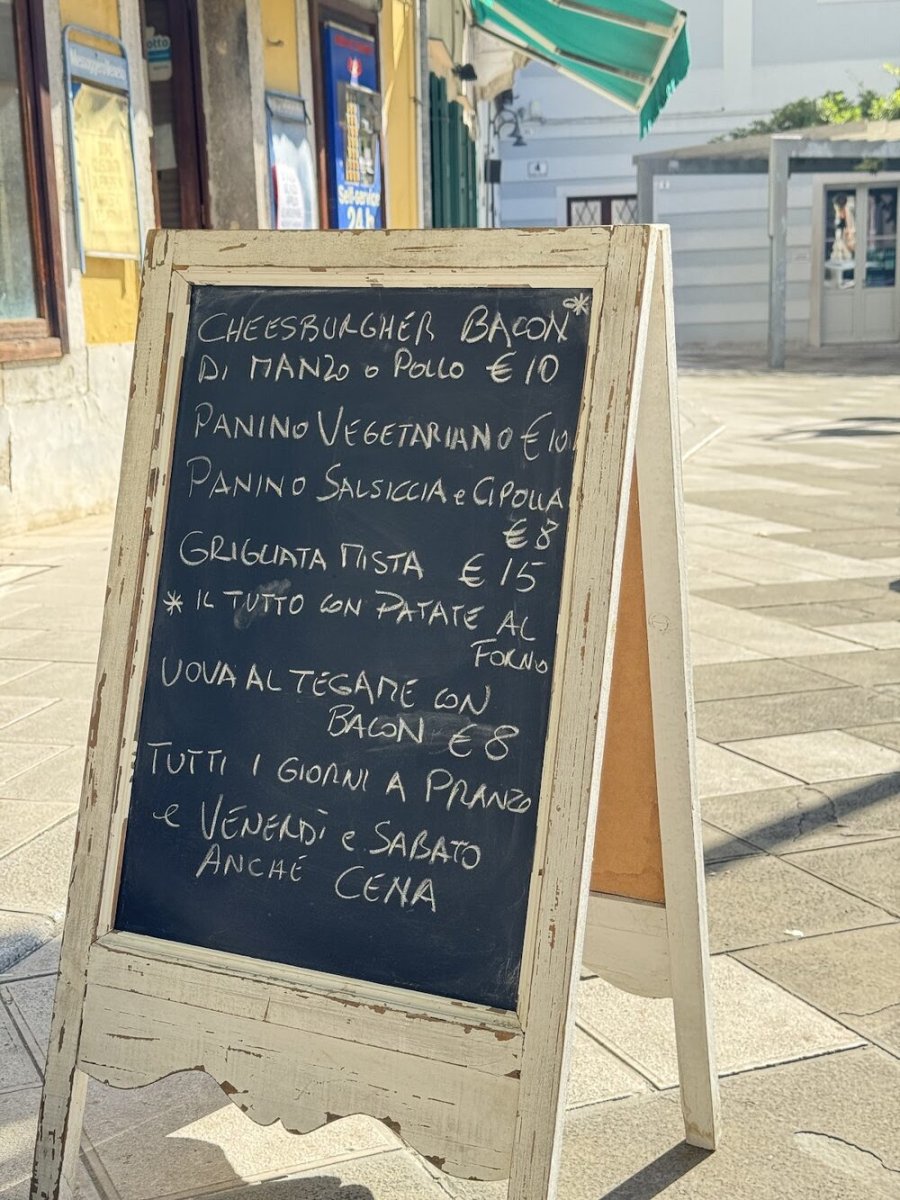 MessaggeroVeneto
otto
Self-service
24h
4
CHEESBURGHER BACON*
DI MANZO o POLLO € 10
PANINO VEGETARIANO € 10
PANINO SALSICCIA e CIPOLLA
€ 8
GRIGLIATA MISTA € 15
* IL TUTTO CON PATATE AL
FORNO
UOVA AL TEGAME CON
BACON € 8
TUTTI I GIORNI A PRANZO
e VENERDÌ e SABATO
ANCHE CENA